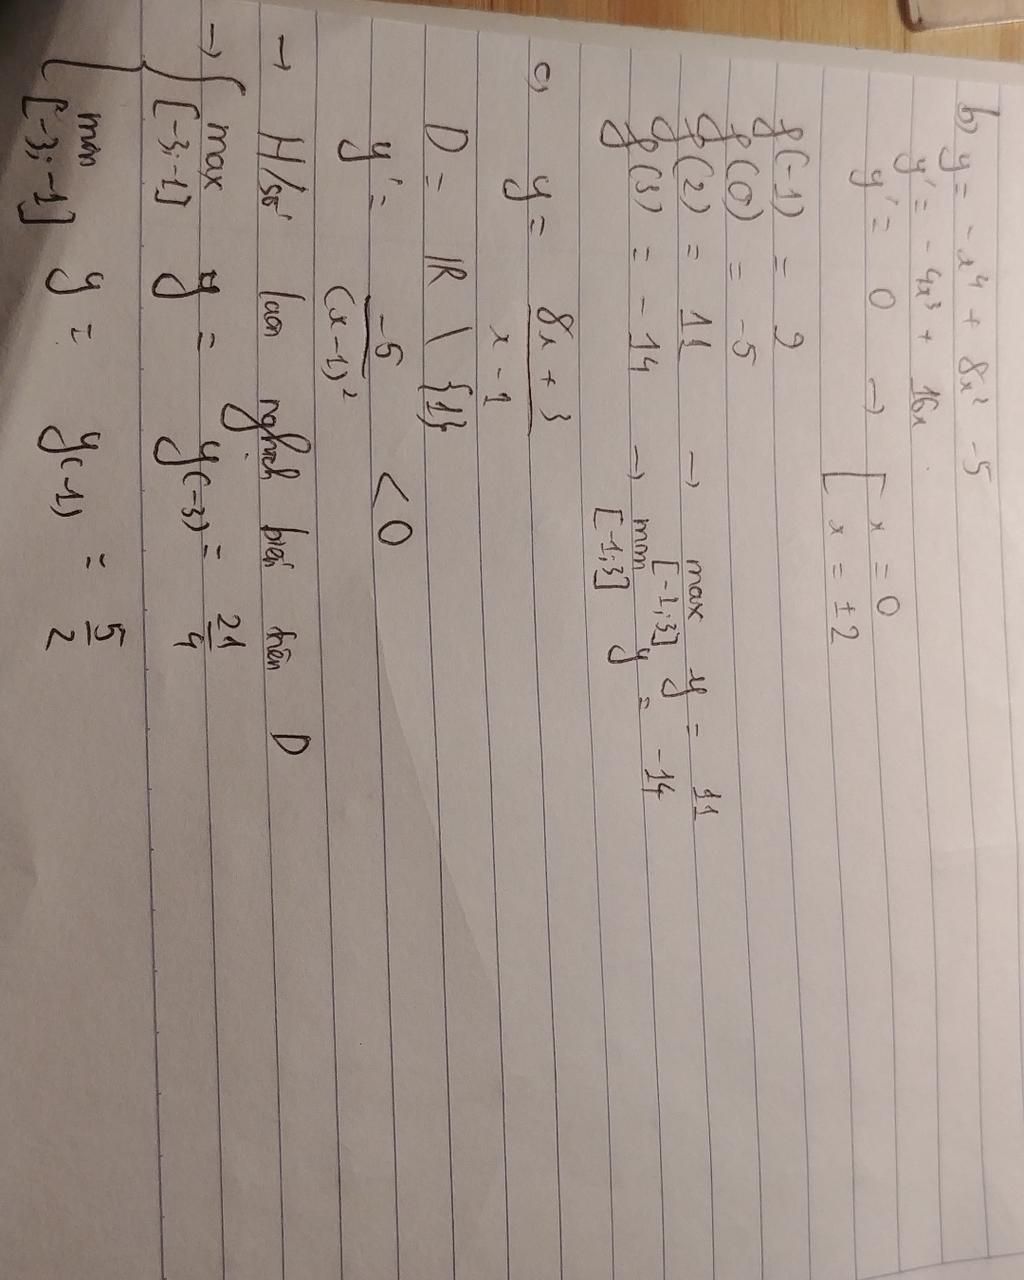 b) y = -x⁴ + 8x² - 5
y' = -4x³ + 16x
y' = 0 → [ x = 0
x = ±2
f(-1) = 2
f(0) = -5
f(2) = 11 → max y = 11
[-1;3]
f(3) = -14 → min y = -14
[-1;3]
c) y = 8x + 3
x - 1
D = ℝ \ {1}
y' = -5 < 0
(x-1)²
→ H/số luôn nghịch biến trên D
→ { max y = y(-3) = 21
[-3;-1] 4
min y = y(-1) = 5
[-3;-1] 2